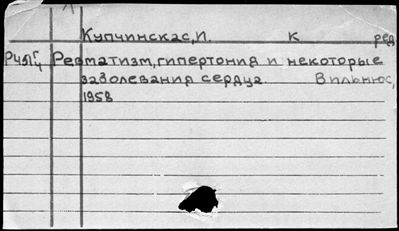 Купчинскас, И. к ред
Ревматизм, гипертония и некоторые
заболевания сердца. Вильнюс,
1958